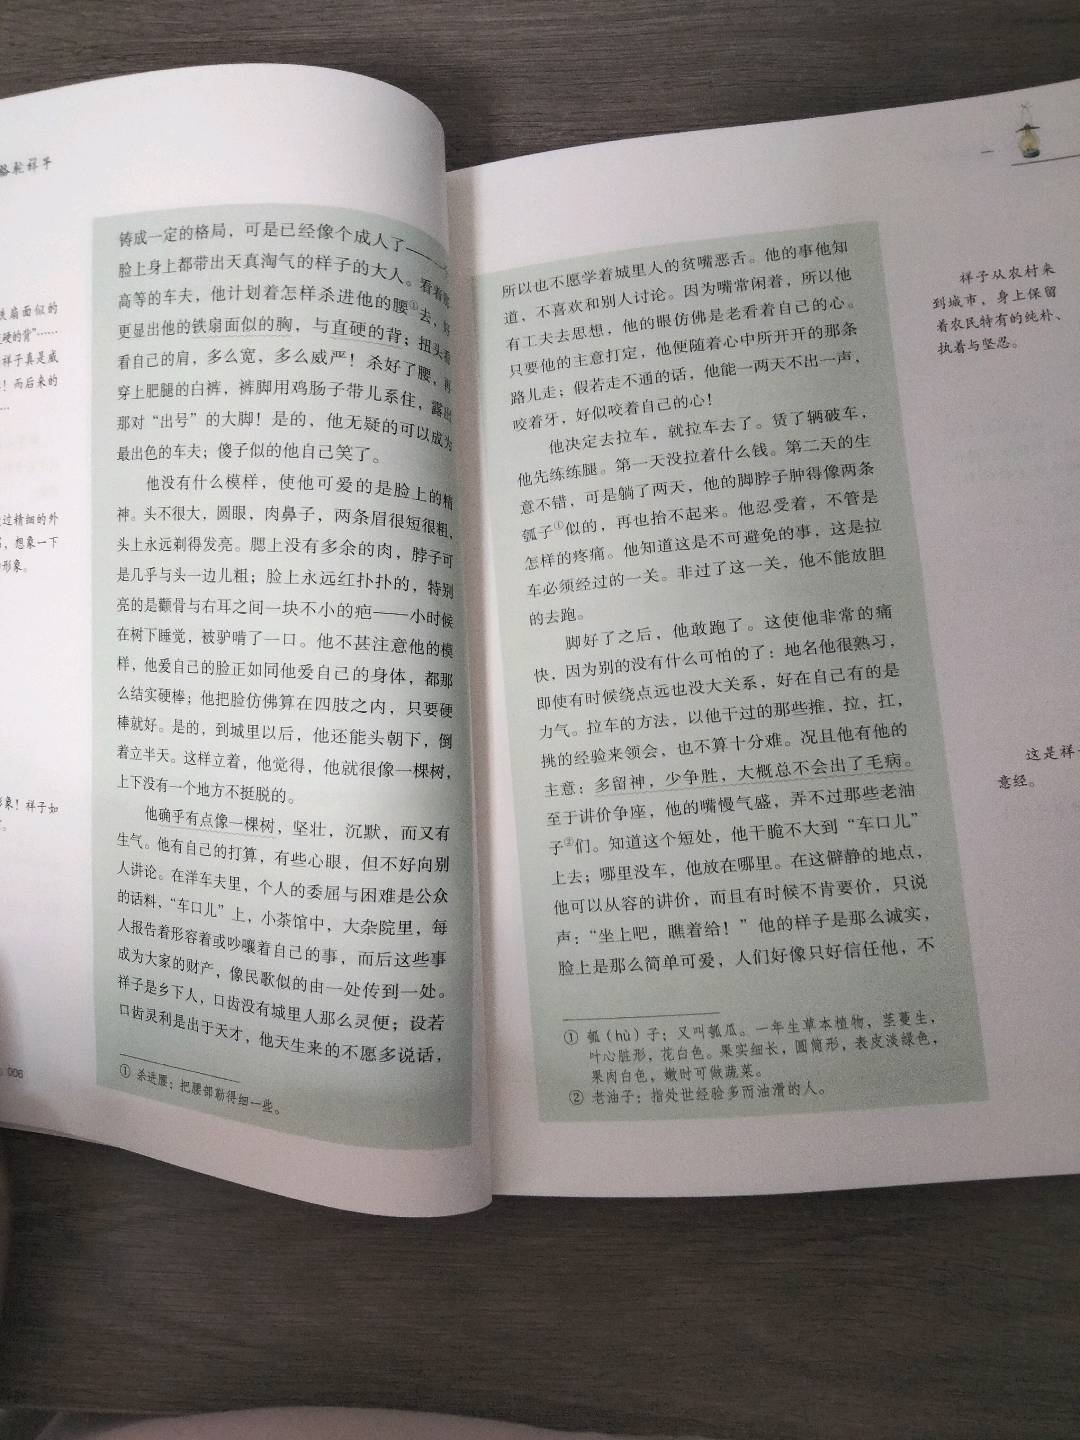 骆驼祥子
铁扇面似的
直硬的背”……
祥子真是威
！而后来的
过精细的外
，想象一下
形象。
象！祥子如
铸成一定的格局，可是已经像个成人了——
脸上身上都带出天真淘气的样子的大人。看着
高等的车夫，他计划着怎样杀进他的腰①去，好
更显出他的铁扇面似的胸，与直硬的背；扭头看
看自己的肩，多么宽，多么威严！杀好了腰，再
穿上肥腿的白裤，裤脚用鸡肠子带儿系住，露出
那对“出号”的大脚！是的，他无疑的可以成为
最出色的车夫；傻子似的他自己笑了。
他没有什么模样，使他可爱的是脸上的精
神。头不很大，圆眼，肉鼻子，两条眉很短很粗，
头上永远剃得发亮。腮上没有多余的肉，脖子可
是几乎与头一边儿粗；脸上永远红扑扑的，特别
亮的是颧骨与右耳之间一块不小的疤——小时候
在树下睡觉，被驴啃了一口。他不甚注意他的模
样，他爱自己的脸正如同他爱自己的身体，都那
么结实硬棒；他把脸仿佛算在四肢之内，只要硬
棒就好。是的，到城里以后，他还能头朝下，倒
着立半天。这样立着，他觉得，他就很像一棵树，
上下没有一个地方不挺脱的。
他确乎有点像一棵树，坚壮，沉默，而又有
生气。他有自己的打算，有些心眼，但不好向别
人讲论。在洋车夫里，个人的委屈与困难是公众
的话料，“车口儿”上，小茶馆中，大杂院里，每
人报告着形容着或吵嚷着自己的事，而后这些事
成为大家的财产，像民歌似的由一处传到一处。
祥子是乡下人，口齿没有城里人那么灵便；设若
口齿灵利是出于天才，他天生来的不愿多说话，
① 杀进腰：把腰部勒得细一些。
006
一
所以也不愿学着城里人的贫嘴恶舌。他的事他知
道，不喜欢和别人讨论。因为嘴常闲着，所以他
有工夫去思想，他的眼仿佛是老看着自己的心。
只要他的主意打定，他便随着心中所开开的那条
路儿走；假若走不通的话，他能一两天不出一声，
咬着牙，好似咬着自己的心！
他决定去拉车，就拉车去了。赁了辆破车，
他先练练腿。第一天没拉着什么钱。第二天的生
意不错，可是躺了两天，他的脚脖子肿得像两条
瓠子①似的，再也抬不起来。他忍受着，不管是
怎样的疼痛。他知道这是不可避免的事，这是拉
车必须经过的一关。非过了这一关，他不能放胆
的去跑。
脚好了之后，他敢跑了。这使他非常的痛
快，因为别的没有什么可怕的了：地名他很熟习，
即使有时候绕点远也没大关系，好在自己有的是
力气。拉车的方法，以他干过的那些推，拉，扛，
挑的经验来领会，也不算十分难。况且他有他的
主意：多留神，少争胜，大概总不会出了毛病。
至于讲价争座，他的嘴慢气盛，弄不过那些老油
子②们。知道这个短处，他干脆不大到“车口儿”
上去；哪里没车，他放在哪里。在这僻静的地点，
他可以从容的讲价，而且有时候不肯要价，只说
声：“坐上吧，瞧着给！”他的样子是那么诚实，
脸上是那么简单可爱，人们好像只好信任他，不
① 瓠（hù）子：又叫瓠瓜。一年生草本植物，茎蔓生，
叶心脏形，花白色。果实细长，圆筒形，表皮淡绿色，
果肉白色，嫩时可做蔬菜。
② 老油子：指处世经验多而油滑的人。
祥子从农村来
到城市，身上保留
着农民特有的纯朴、
执着与坚忍。
这是祥
意经。